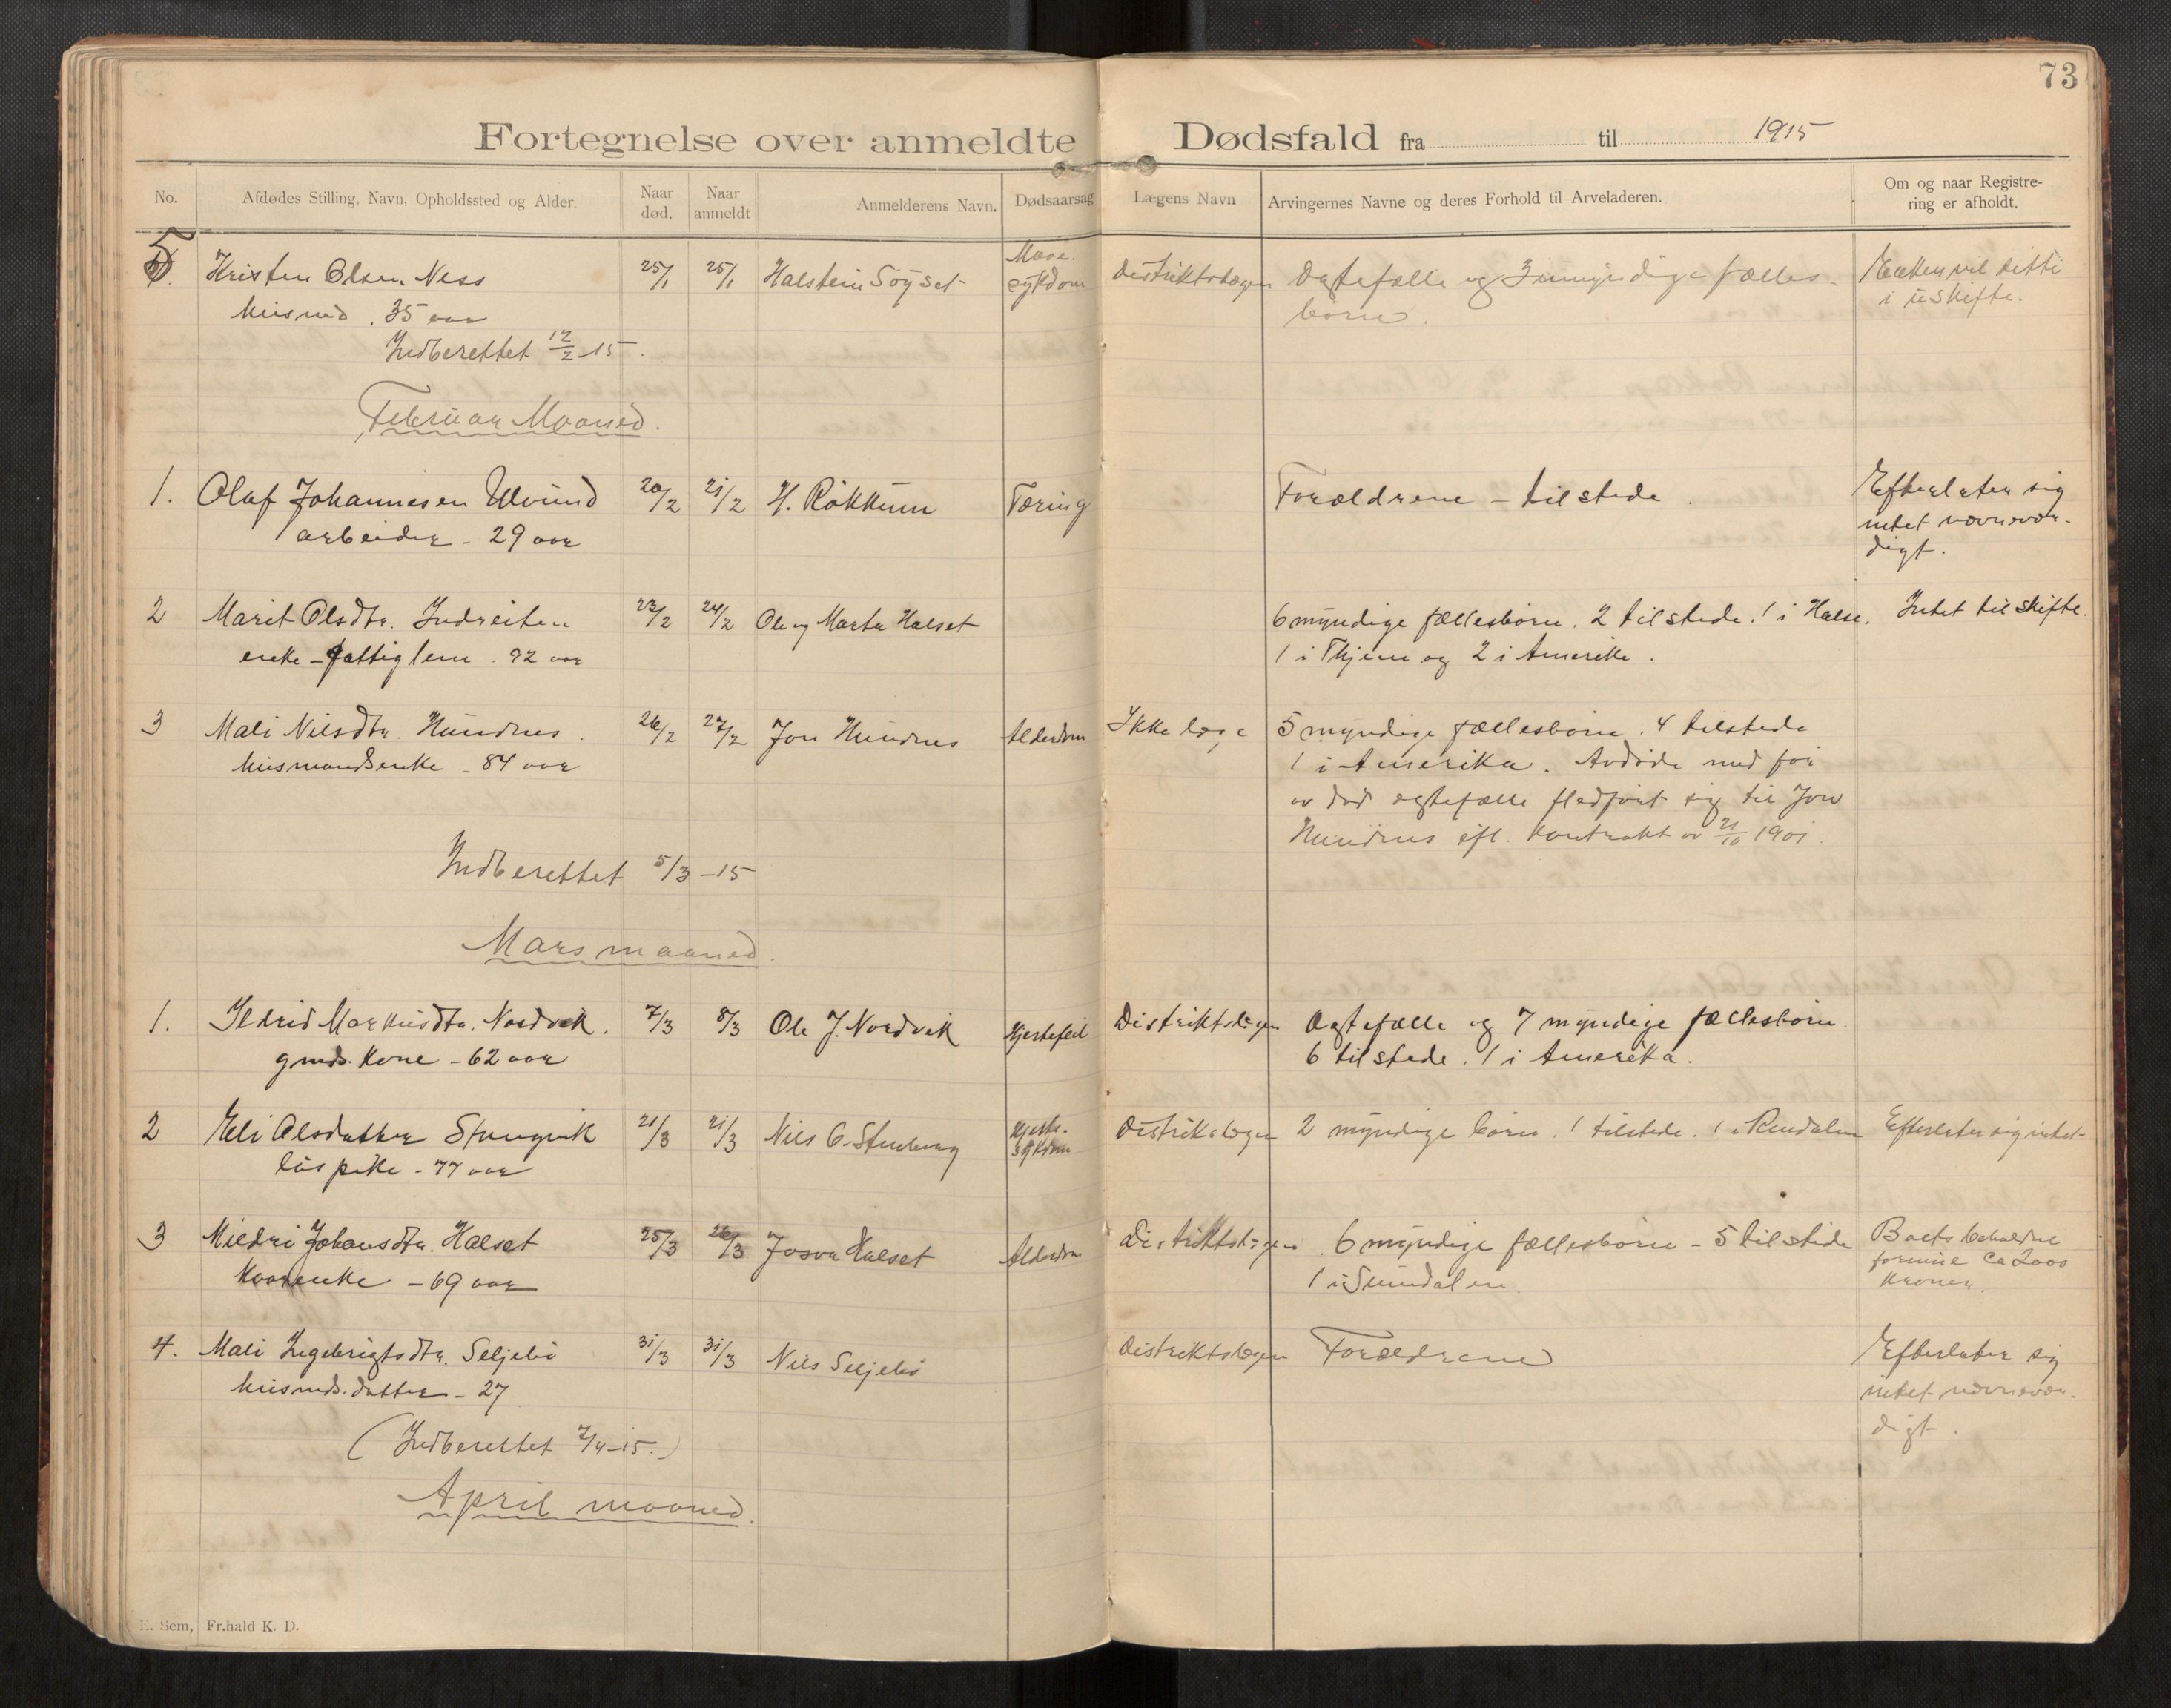 73
Fortegnelse over anmeldte Dødsfald fra til 1915
No.
Afdødes Stilling, Navn, Opholdssted og Alder.
Naar død.
Naar anmeldt
Anmelderens Navn.
Dødsaarsag
Lægens Navn
Arvingernes Navne og deres Forhold til Arveladeren.
Om og naar Registre-
ring er afholdt.
5. Kristen Olsen Ness 25/1 25/1 Halstein Söyset Mave- Distriktslægen Ægtefælle og 3 umyndige fælles- Enken vil sitte
husmd. 35 aar sykdom börn. i uskifte.
Indberettet 12/2 15.
Februar Maaned.
1. Olaf Johannesen Ulvund 20/2 21/2 H. Rökkum Tæring Forældrene – tilstede. Efterlater sig
arbeider – 29 aar intet nævnevær-
digt.
2 Marit Olsdtr. Indreiten 23/2 24/2 Ole og Marta Halset 6 myndige fællesbörn. 2 tilstede. 1 i Halse. Intet til skifte.
enke – fattiglem. 92 aar 1 i Thjem og 2 i Amerika.
3 Mali Nilsdtr. Hundnes. 26/2 27/2 Jon Hundnes Alderdom Ikke læge 5 myndige fællesbörn. 4 tilstede
husmandsenke – 84 aar 1 i Amerika. Avdöde med for
av död egtefælle fledfört sig til Jon
Hundnes efl. kontrakt av 21/10 1901.
Indberettet 5/3 – 15
Mars maaned.
1. Ildrid Markusdtr. Nordvik. 7/3 8/3 Ole J. Nordvik Hjertefeil Distriktslægen Ægtefælle og 7 myndige fællesbörn.
gmds. kone – 62 aar 6 tilstede. 1 i Amerika.
2 Eli Olsdatter Stangvik 21/3 21/3 Nils O. Stenberg Hjerte- Distriktslægen 2 myndige börn 1 tilstede. 1 i Rendalen Efterlater sig intet
lös pike – 77 aar sykdom
3 Mildri Johansdtr. Halset 25/3 26/3 Josva Halset Alderdom Distriktslægen 6 myndige fællesbörn – 5 tilstede Boets beholdne
Kaarenke – 69 aar 1 i Sundalen. formue ca 2000
kroner.
4. Mali Ingebrigtsdtr. Seljebö 31/3 31/3 Nils Seljebö Distriktslægen Forældrene Efterlater sig
husmds. datter – 27 intet nævnevær-
digt.
(Indberettet 7/4–15.)
April maaned.
E. Sem, Fr.hald K. D.